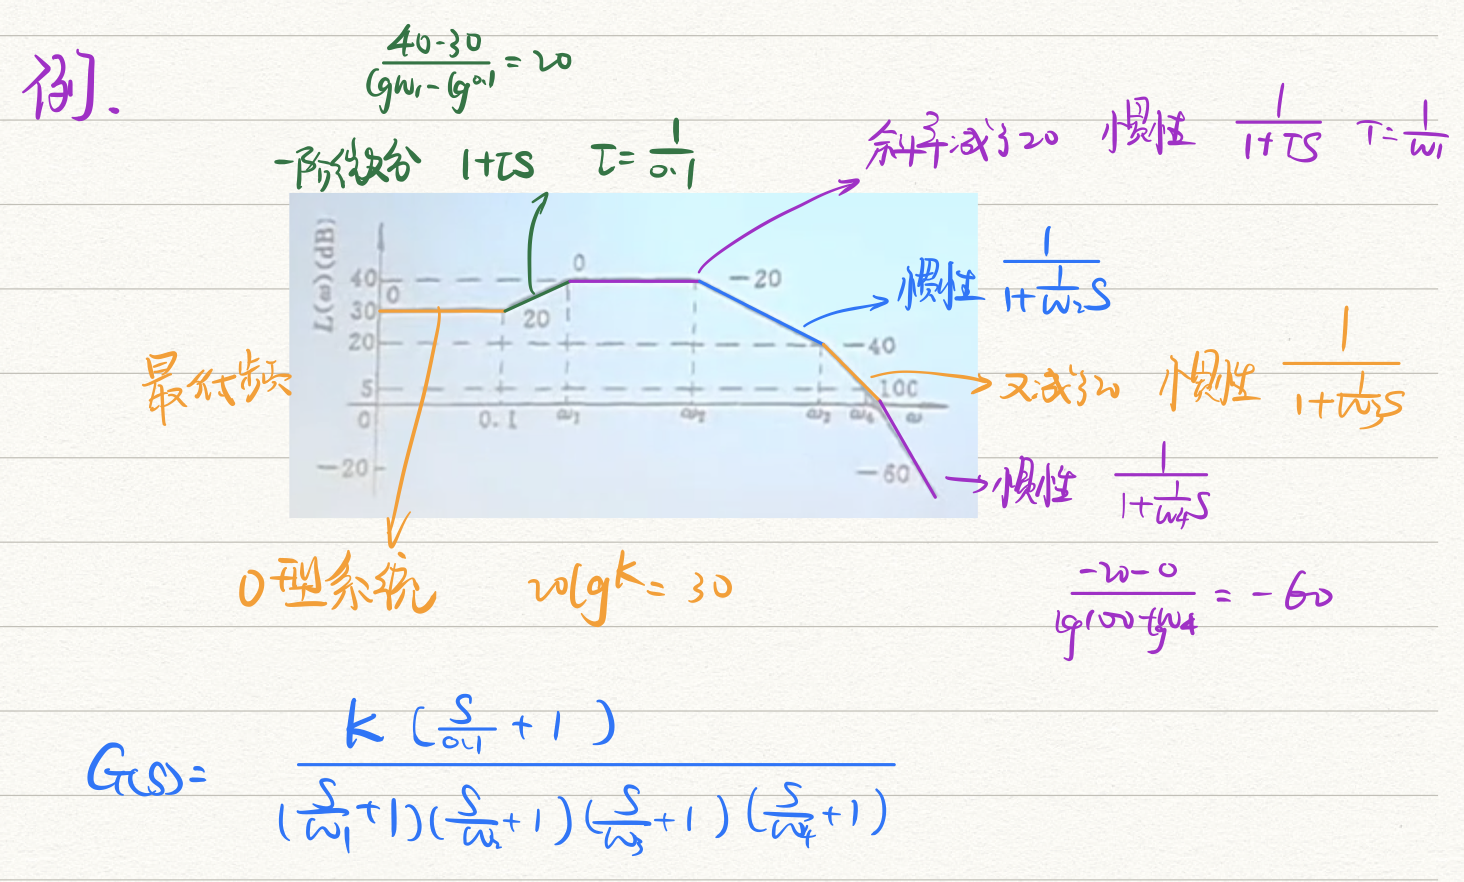 例.
(40-30)/(lgω₁-lg0.1) = 20
一阶微分 1+τS τ=1/0.1
斜率减了20 惯性 1/(1+TS) T=1/ω₁
L(ω)(dB)
40
30
20
5
0
-20
0
20
0
-20
-40
-60
0.1
ω₁
ω₂
ω₃
ω₄
100
ω
惯性 1/(1+(1/ω₂)S)
最低频
又减了20 惯性 1/(1+(1/ω₃)S)
惯性 1/(1+(1/ω₄)S)
0型系统 20lgK=30
(-20-0)/(lg100-lgω₄) = -60
G(S)= K(S/0.1+1)/((S/ω₁+1)(S/ω₂+1)(S/ω₃+1)(S/ω₄+1))